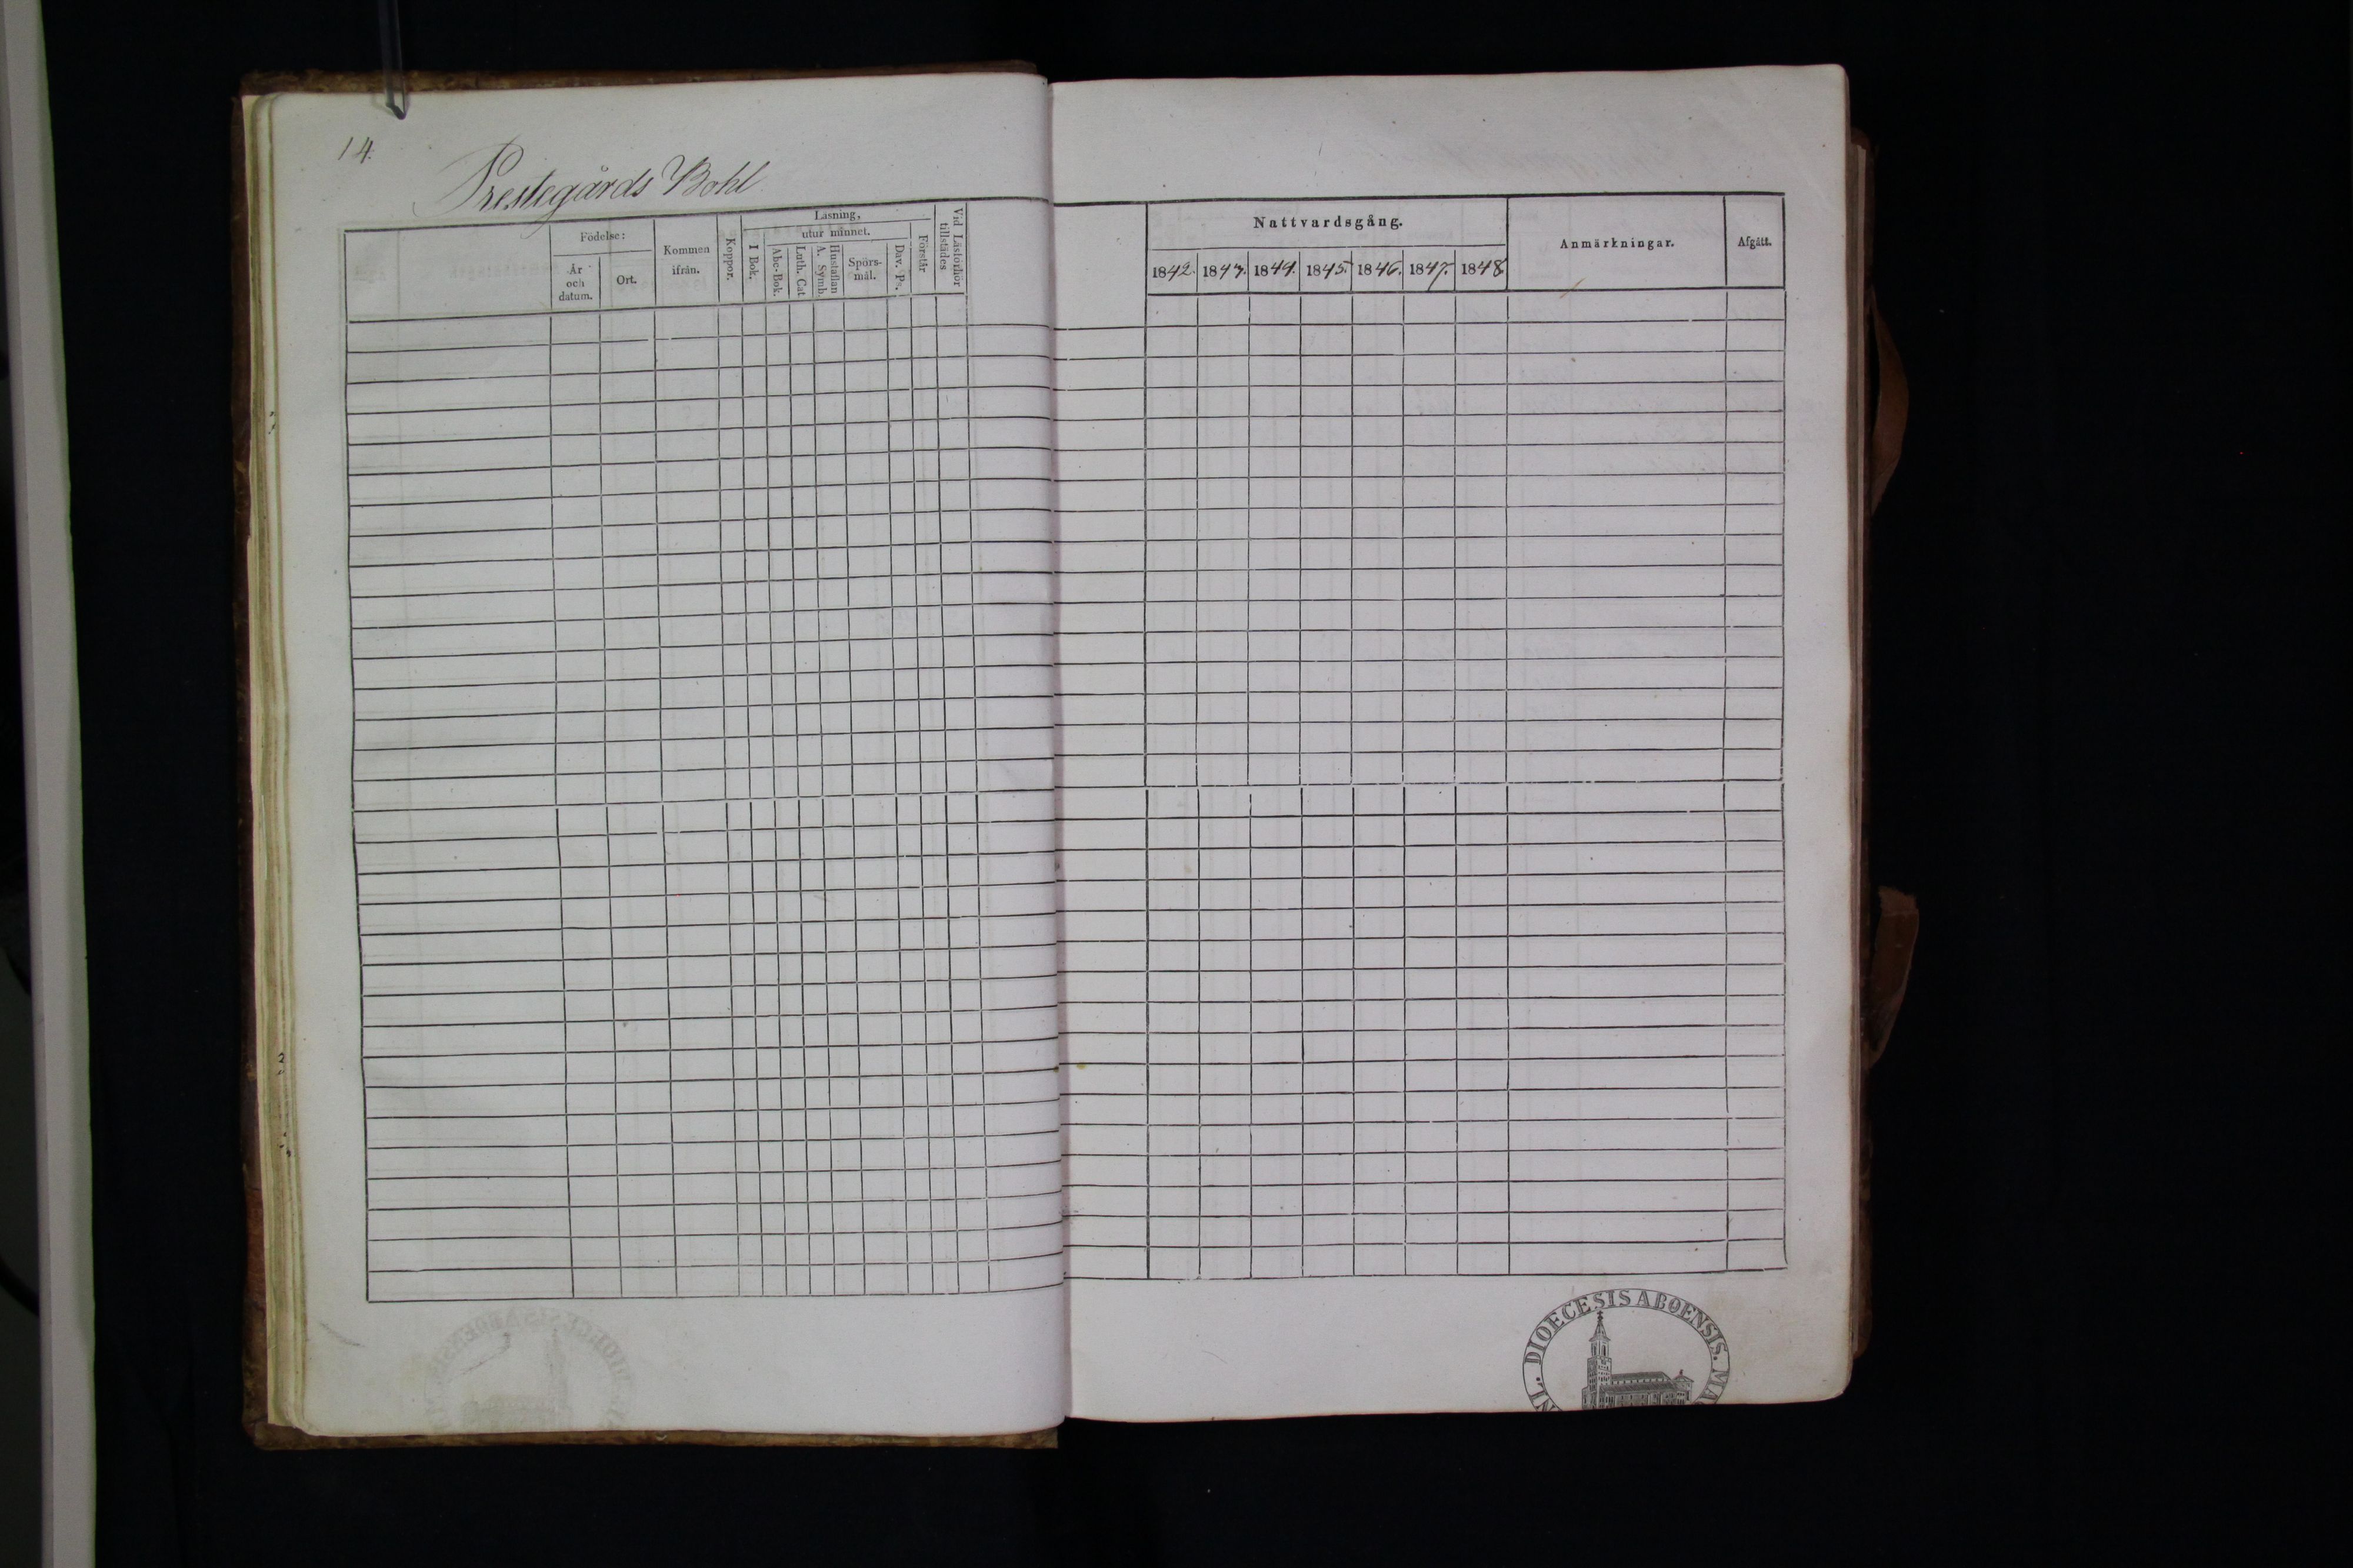 14.
Prestegårds Bohl
Födelse:
År och datum.
Ort.
Kommen ifrån.
Koppor.
Läsning,
I Bok.
utur minnet.
Abc-Bok.
Luth. Cat
Hustaflan A. Symb.
Spörs-mål.
Dav. Ps.
Förstår
Vid Läsförhör tillstädes
Nattvardsgång.
1842. 1843. 1844. 1845. 1846. 1847. 1848
Anmärkningar.
Afgått.
DIOECESIS ABOENSIS.